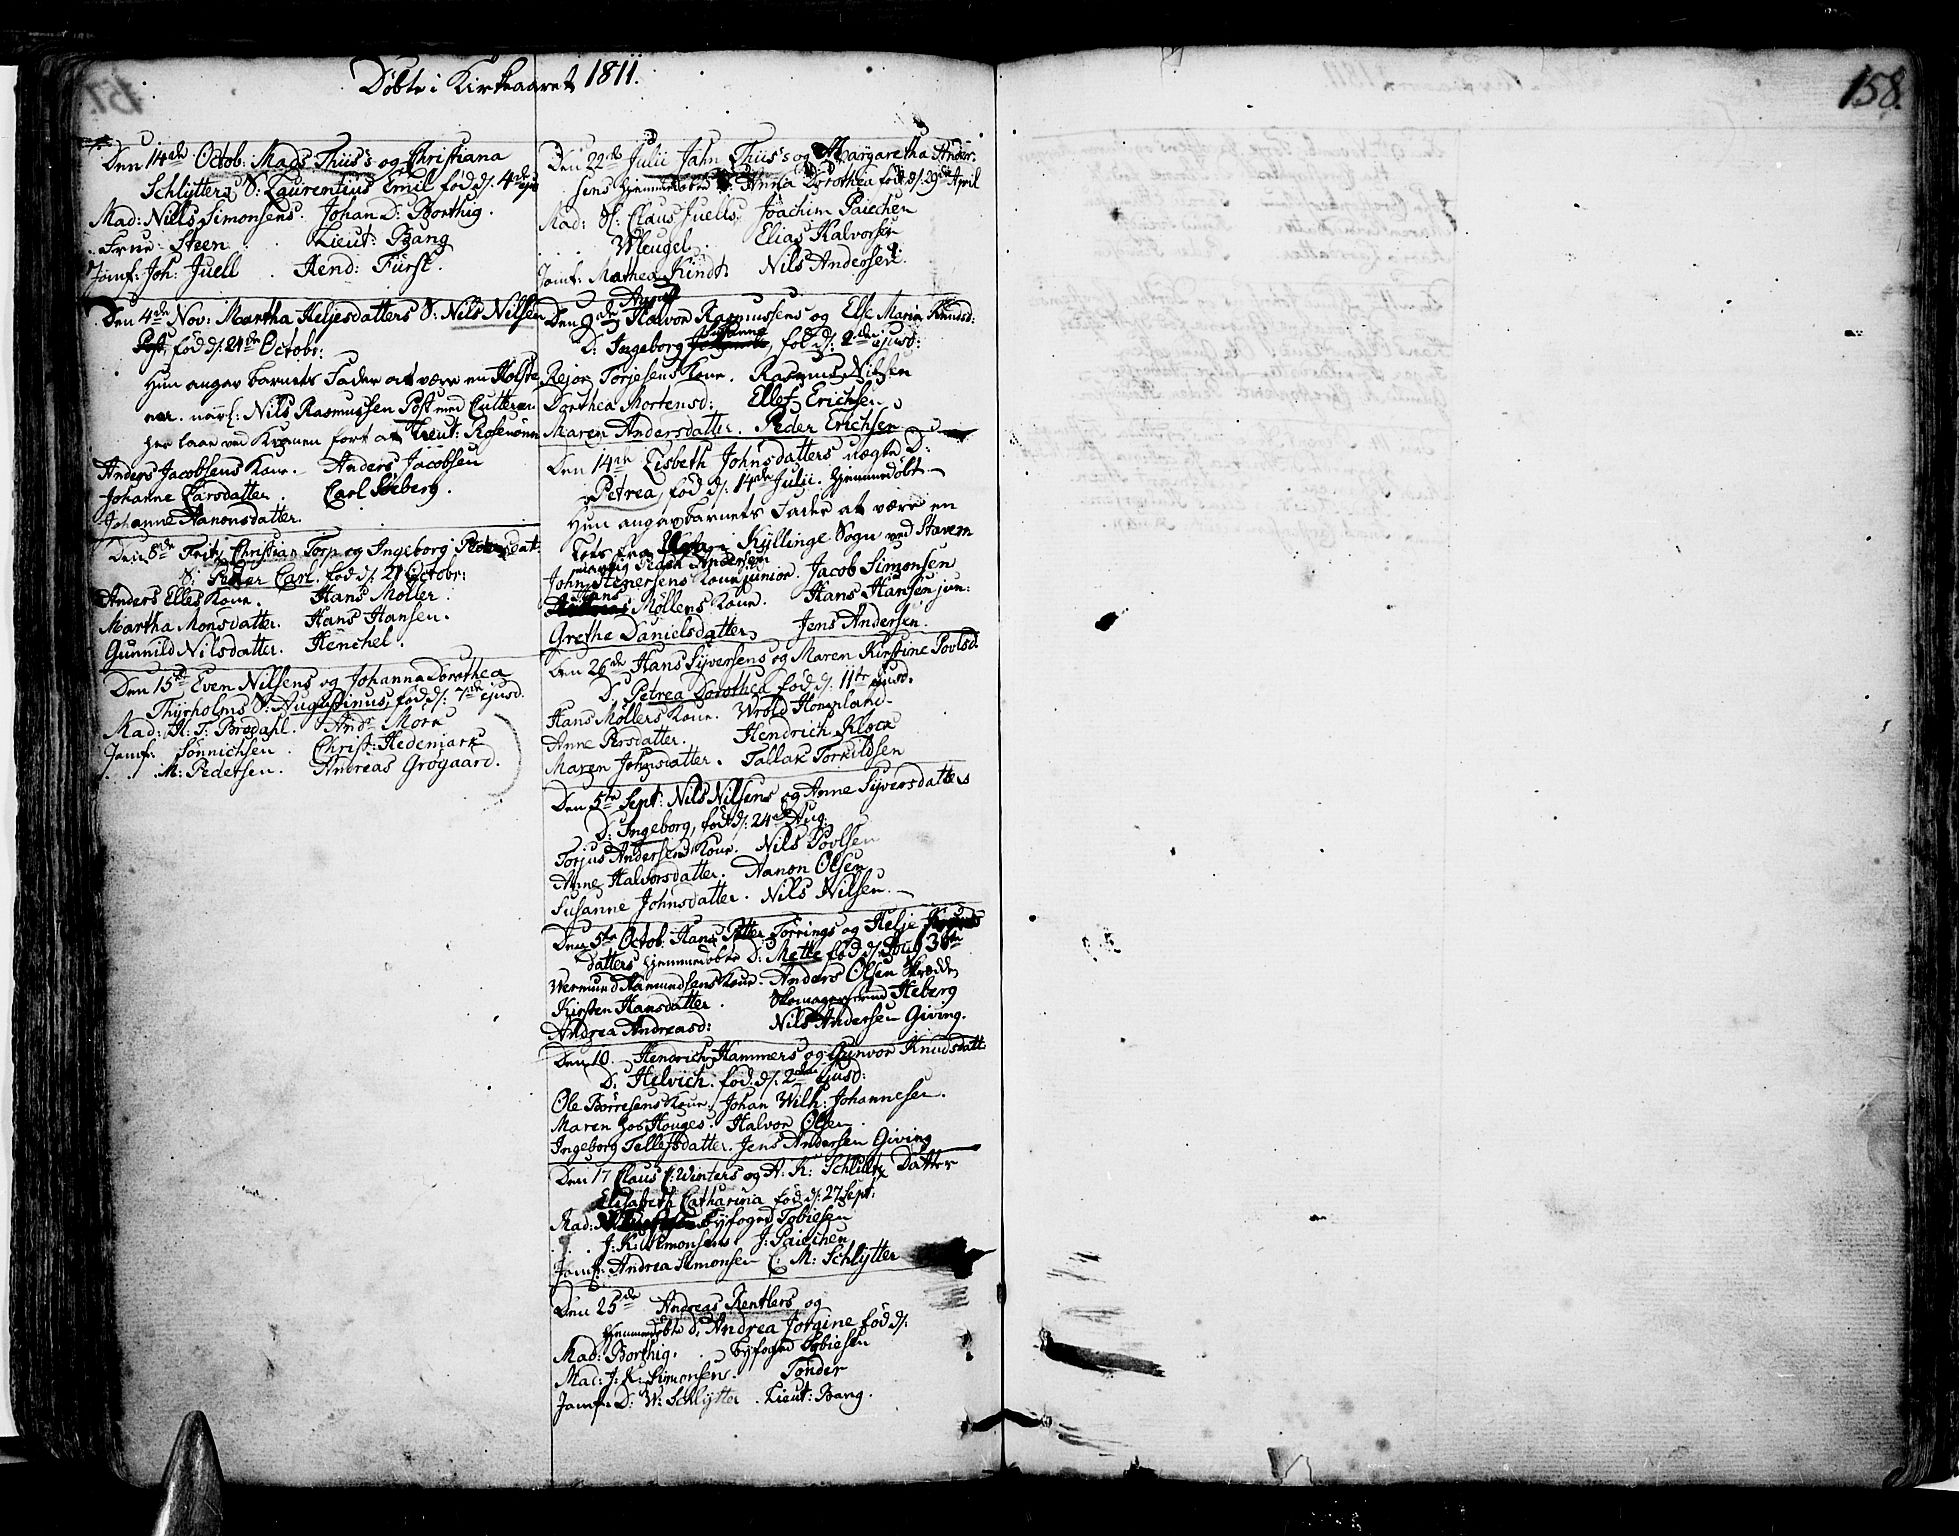 Döbte i Kirkeaaret 1811.
158.
Den 14de Octob: Mads Thüs's og Christiana
Schlÿtters S: Laurentius Emil fød d/: 4de ejus
Mad: Niels Simonsens. Johan D: Borthig.
Frue Steen. Lieut: Bang
Jomf: Joh: Juell. Hend: Fürst.
Den 4de Nov: Martha Heljesdatters S: Nils Nilsen
Post, fød d/: 21de Octobr:
Hun angav Barnets Fader at være en Holste
ner. navl: Nils Rasmussen Post med Cutteren
her laae ved Kranen fört af Lieut: Rosenönn
Anders Jacobsens Kone. Anders Jacobsen
Johanne Larsdatter. Carl Søeberg.
Johanne Aanonsdatter.
Den 8de Fritz Christian Torp og Ingeborg Pedersdat:
S: Peter Carl. fød d/: 21 Octobr:
Anders Elles Kone. Hans Möller.
Martha Monsdatter. Hans Hansen.
Gunnild Nilsdatter. Henchel.
Den 15de Even Nilsens og Johanna Dorothea
Thÿrholms S: Augustinus, fød d/: 7de ejusd.
Mad: H: T: Brodahl. Andr: Mork
Jomf: Sönnichsen. Christ: Hedemark
M: Pedersen. Andreas Grögaard.
Den 22de Julii Jahn Thüs's og Margaretha Ander:
sens hjemmedøbte D: Anna Dorothea fød d/: 29de April
Mad: Sl: Claus Juells. Joachim Paiechen
Wleugel. Elias Halvorsen
Jomf: Mathea Kindt. Nils Andersen.
August
Den 9de Halvor Rasmussens og Else Maria Knudsd:
D: Ingeborg Susanne, fød d/: 2de ejusd:
Rejor Torjesens Kone. Rasmus Nilsen
Dorthea Mortensd: Ellef Erichsen
Maren Andersdatter. Peder Erichsen
Den 14de Lisbeth Johnsdatters uægte D:
Petrea, fød d/: 14de Julii. hjemmedøbt
Hun angav Barnets Fader at være en
Lots fra i Kyllinge Sogn ved Stavern
navnlig Peder Andersen
John Stenersens Kone junior. Jacob Simonsen
Hans Möllers Kone. Hans Hansen jun:
Grethe Danielsdatter. Jens Andersen.
Den 26de Hans Sÿversens og Maren Kirstine Povlsd.
D: Petrea Dorothea fød d/: 11te ejusd.
Hans Möllers Kone. Wrold Homenland.
Anne Persdatter. Hendrich Klock
Maren Johnsdatter. Tallak Torkildsen
Den 5te Sept: Nils Nilsens og Anne Sÿversdatters
D: Ingeborg, fød d/: 24de Aug.
Torjus Andersens Kone. Nils Povlsen
Anne Halvorsdatter. Aanon Olsen
Susanne Johnsdatter. Nils Nilsen.
Den 5te Octob. Hans Petter Torrings og Helje
datters hjemmedøbte D: Mette fød d/: 30te
Wermund Aamundsens Kone. Anders Olsen Skrædder
Kirsten Hansdatter. Skomagersvend Heberg
Andrea Andreasd: Nils Andersen Giving.
Den 10. Hendrich Hammers og Gunvor Knudsdatt:
D. Helvich. fød d/: 2den ejusd:
Ole Börresens Kone. Johan Wilh: Johannesen.
Maren hos Houges. Halvor Olsen.
Ingeborg Tellefsdatter. Jens Andersen Giving
Den 17 Claus C: Winters og A: K: Schlütter Datter
Elisabeth Catharina fød d/: 27 Sept:
Mad: Byfoged Tobiesen
J. K. Simonsens J. Paiechen
Jomf: Andrea Simonsen C: M: Schlÿtter
Den 25de Andreas Rentlers og
hjemmedøbte D. Andrea Jorgine fød d/:
Mad: Borthig. Byfoged Tobiesen
Mad: J: K: Simonsens. Tönder
Jomf: D: W: Schlÿtter. Lieut: Bang.